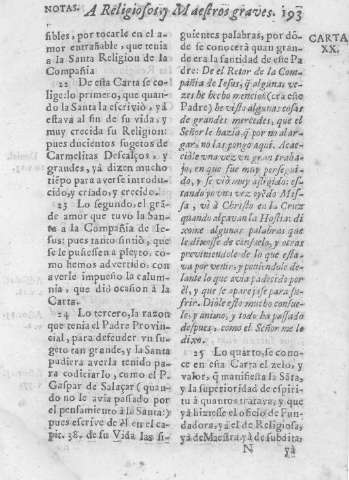 NOTAS. A Religiosos, y Maestros graves. 193
CARTA
XX.
sibles, por tocarle en el a-
mor entrañable, que tenia
a la Santa Religion de la
Compañia
22 De esta Carta se co-
lige: lo primero, que quan-
do la Santa la escrivio, yà
estava al fin de su vida, y
muy crecida su Religion:
pues ducientos sugetos de
Carmelitas Descalços, y
grandes, yà dizen mucho
tiẽpo para averse introdu-
cido, y criado, y crecido.
23 Lo segundo, el grã-
de amor que tuvo la San-
ta a la Compañia de Ie-
sus: pues tanto sintiò, que
se le pusiessen a pleyto,
como hemos advertido, con
averle impuesto la calum-
nia, que diò ocasion à la
Carta.
24 Lo tercero, la razon
que tenia el Padre Provin-
cial, para defender vn su-
geto tan grande, y la Santa
pudiera averla tenido pa-
ra codiciarlo, como el P.
Gaspar de Salaçar (quan-
do no le avia passado por
el pensamiento à la Santa: y
pues escrive de èl en el ca-
pit. 38. de su Vida las si-
guientes palabras, por dõ-
de se conocerà quan gran-
de era la santidad de este Pa-
dre: De el Retor de la Com-
pañia de Iesus, q̃ algunas ve-
zes he hecho mencion (era este
Padre) he visto algunas cosas
de grandes mercedes, que el
Señor le hazia, q̃ por no alar-
gar, no las pongo aqui. Acae-
ciòle vna vez vn gran traba-
jo, en que fue muy perse-
do, y se viò muy afligido: es-
tando yo vna vez oyẽdo Mis-
sa, vi à Christo en la Cruz
quando alçavan la Hostia: di-
xome algunas palabras que
le dixesse de consuelo, y otras
previniendole de lo que esta-
va por venir, y poniendole de-
lante lo que avia padecido por
èl, y que se aparejasse para su-
frir. Diòle esto mucho consue-
lo, y animo, y todo ha passado
despues, como el Señor me lo
dixo.
25 Lo quarto, se cono-
ce en esta Carta el zelo, y
valor, q̃ manifiesta la Sãta,
y la superioridad de espiri-
tu à quantos tratava, y que
yà hiziesse el oficio de Fun-
dadora, yà el de Religiosa,
yà de Maestra, yà de subdita:
N yà